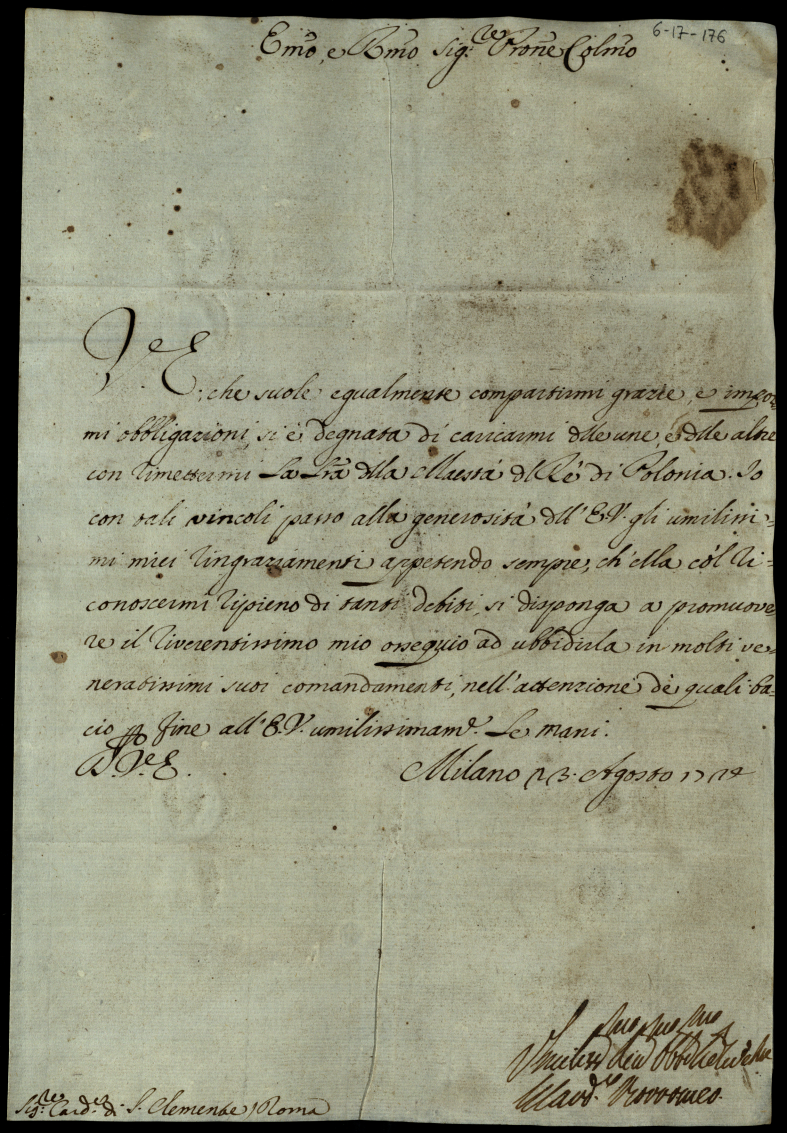 6-17-176
Emo, e Rmo Sig.re Prone Colmo
V. E. che suole egualmente compartirmi grazie, e impor=
mi obbligazioni, si è degnata di caricarmi dlle une, e dlle altre
con rimettermi La Lra dlla Maestà dl Rè di Polonia. Io
con tali vincoli passo alla generosità dll' E.V. gli umilissi=
mi miei ringraziamenti appetendo sempre, ch' ella col ri=
conoscermi ripieno di tanti debiti, si disponga a promuove=
re il riverentissimo mio ossequio ad ubbidirla in molti ve=
neratissimi suoi comandamenti, nell' attenzione de quali ba=
cio p fine all' E.V. umilissimam.e Le mani.
D. V. E.
Milano 23. Agosto 1714
Umiliss.mo Dev.mo Obb.mo
Sig.re Card.e di S. Clemente / Roma